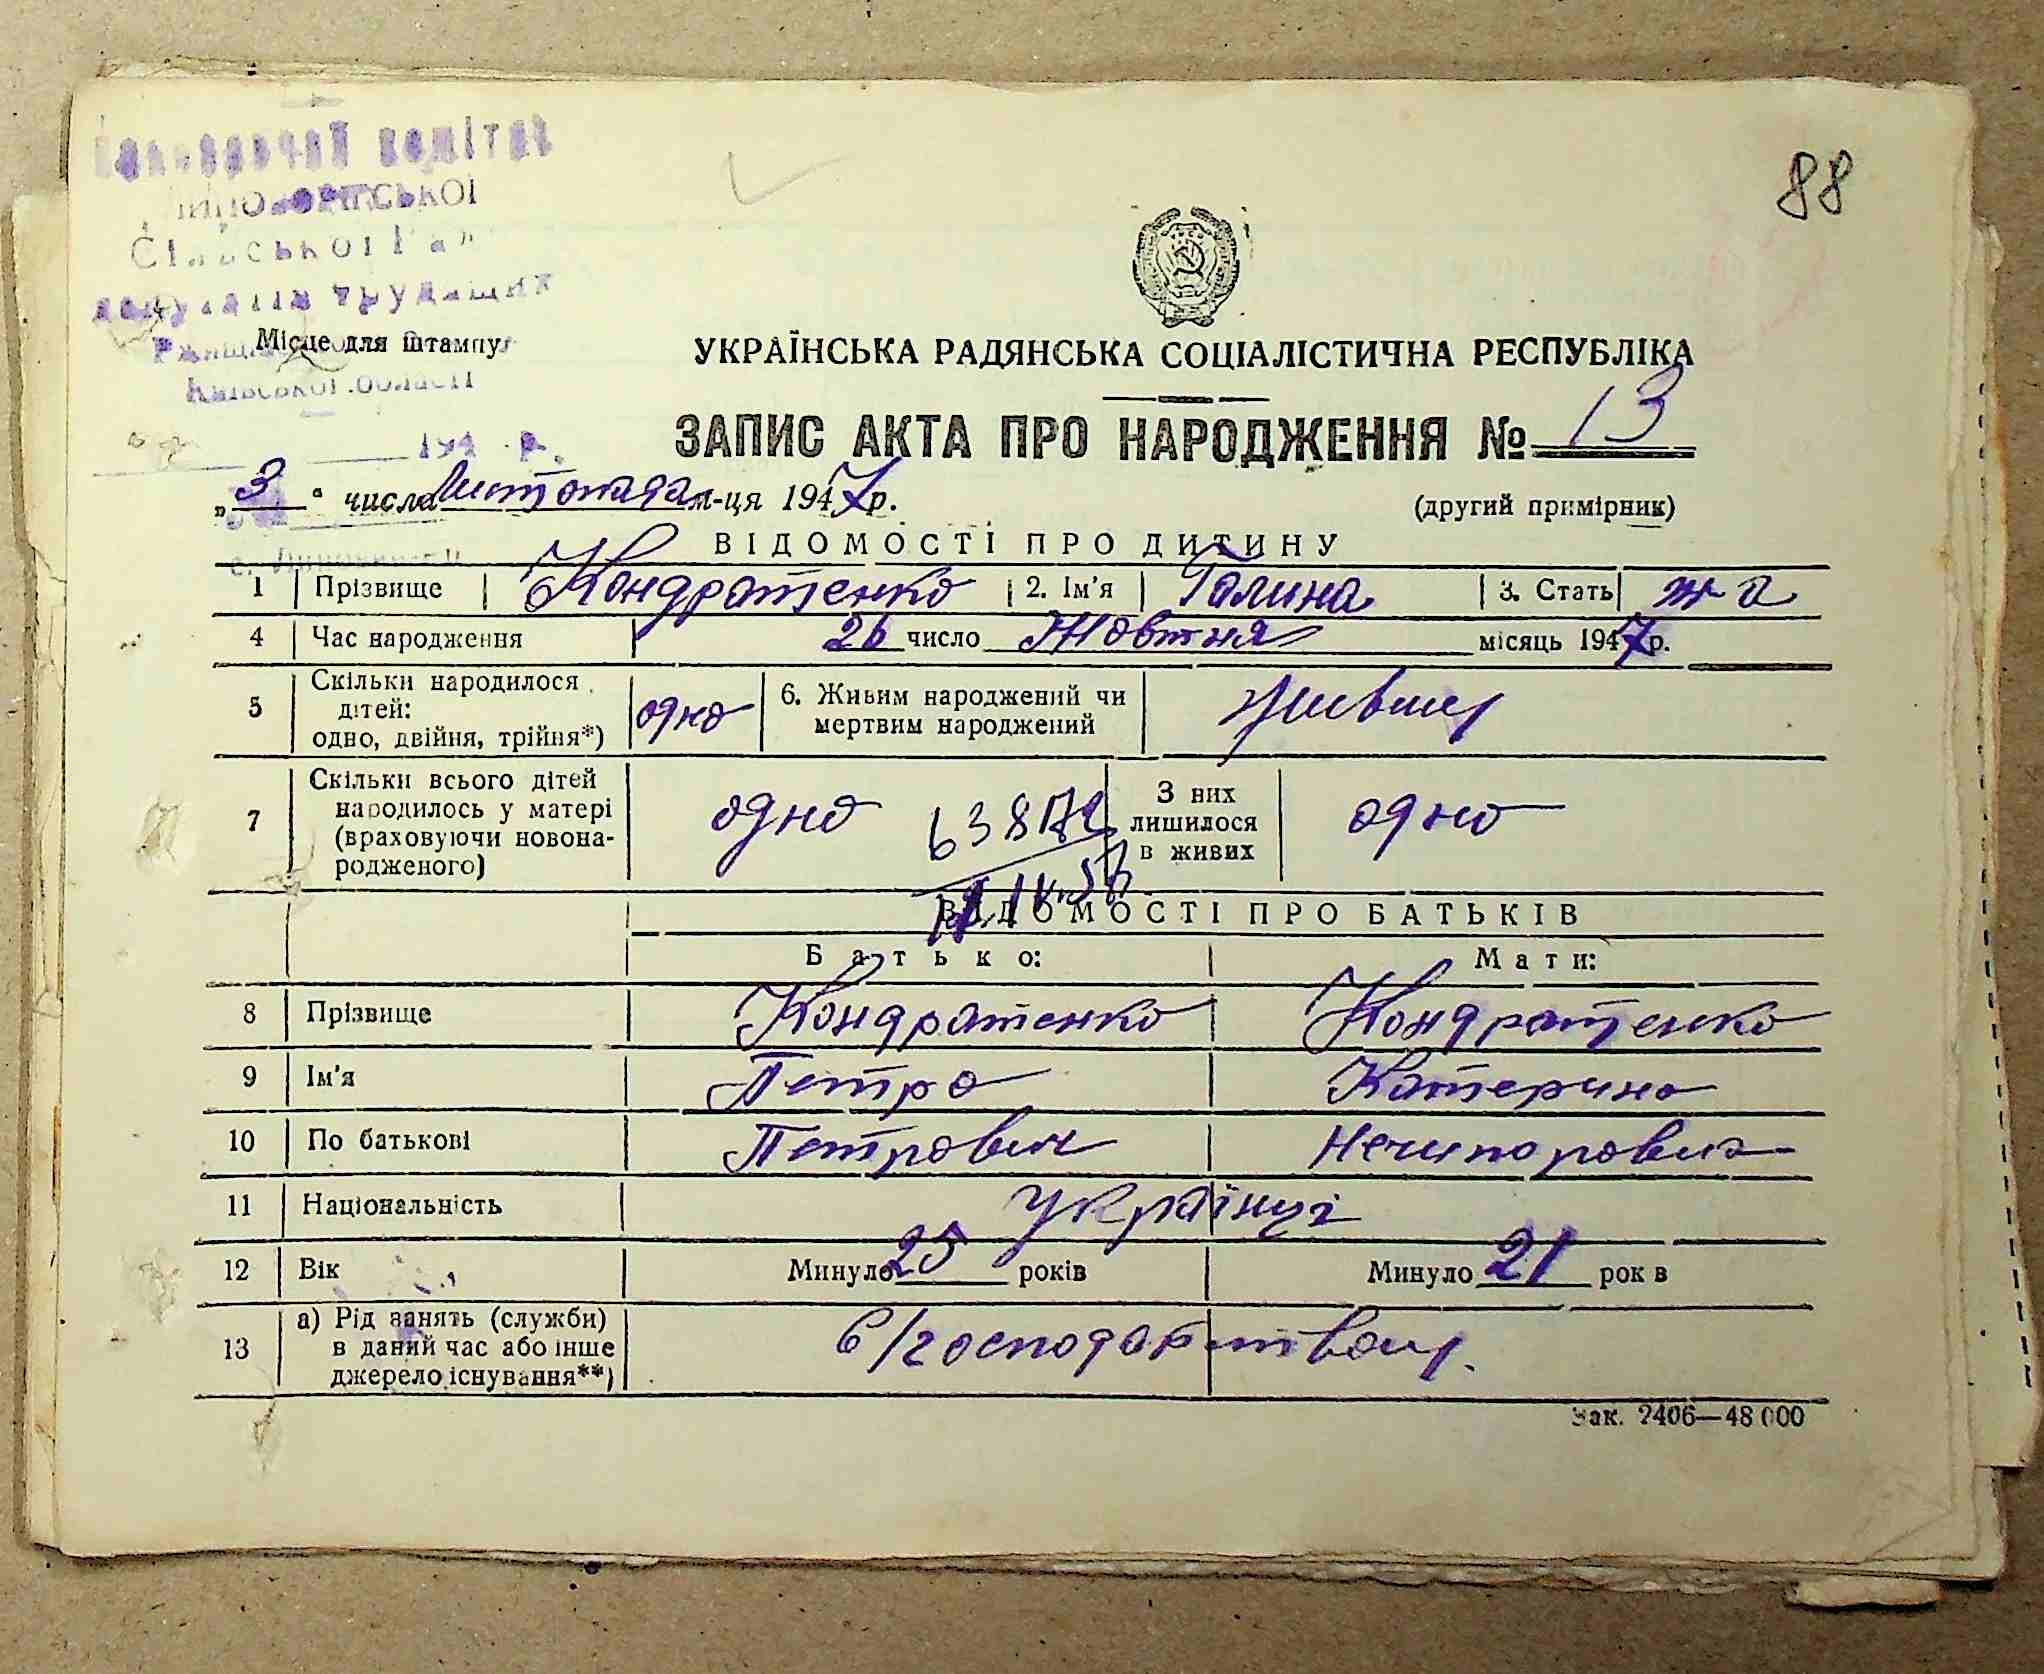 88
комітет
депутатів трудящих
Місце для штампу
Київської області
194 р.
УКРАЇНСЬКА РАДЯНСЬКА СОЦІАЛІСТИЧНА РЕСПУБЛІКА
ЗАПИС АКТА ПРО НАРОДЖЕННЯ № 13
„3" числа Листопада м-ця 1947 р.
(другий примірник)
ВІДОМОСТІ ПРО ДИТИНУ
1 Прізвище Кондратенко 2. Ім'я Галина 3. Стать ж-а
4 Час народження 26 число Жовтня місяць 1947 р.
5 Скільки народилося дітей: одно, двійня, трійня*) одно 6. Живим народжений чи мертвим народжений живим
7 Скільки всього дітей народилось у матері (враховуючи новонародженого) одно З них лишилося в живих одно
ВІДОМОСТІ ПРО БАТЬКІВ
Батько: Мати:
8 Прізвище Кондратенко Кондратенко
9 Ім'я Петро Катерина
10 По батькові Петрович
11 Національність Українці
12 Вік Минуло 25 років Минуло 21 років
13 а) Рід занять (служби) в даний час або інше джерело існування**)
Зак. 2406—48 000